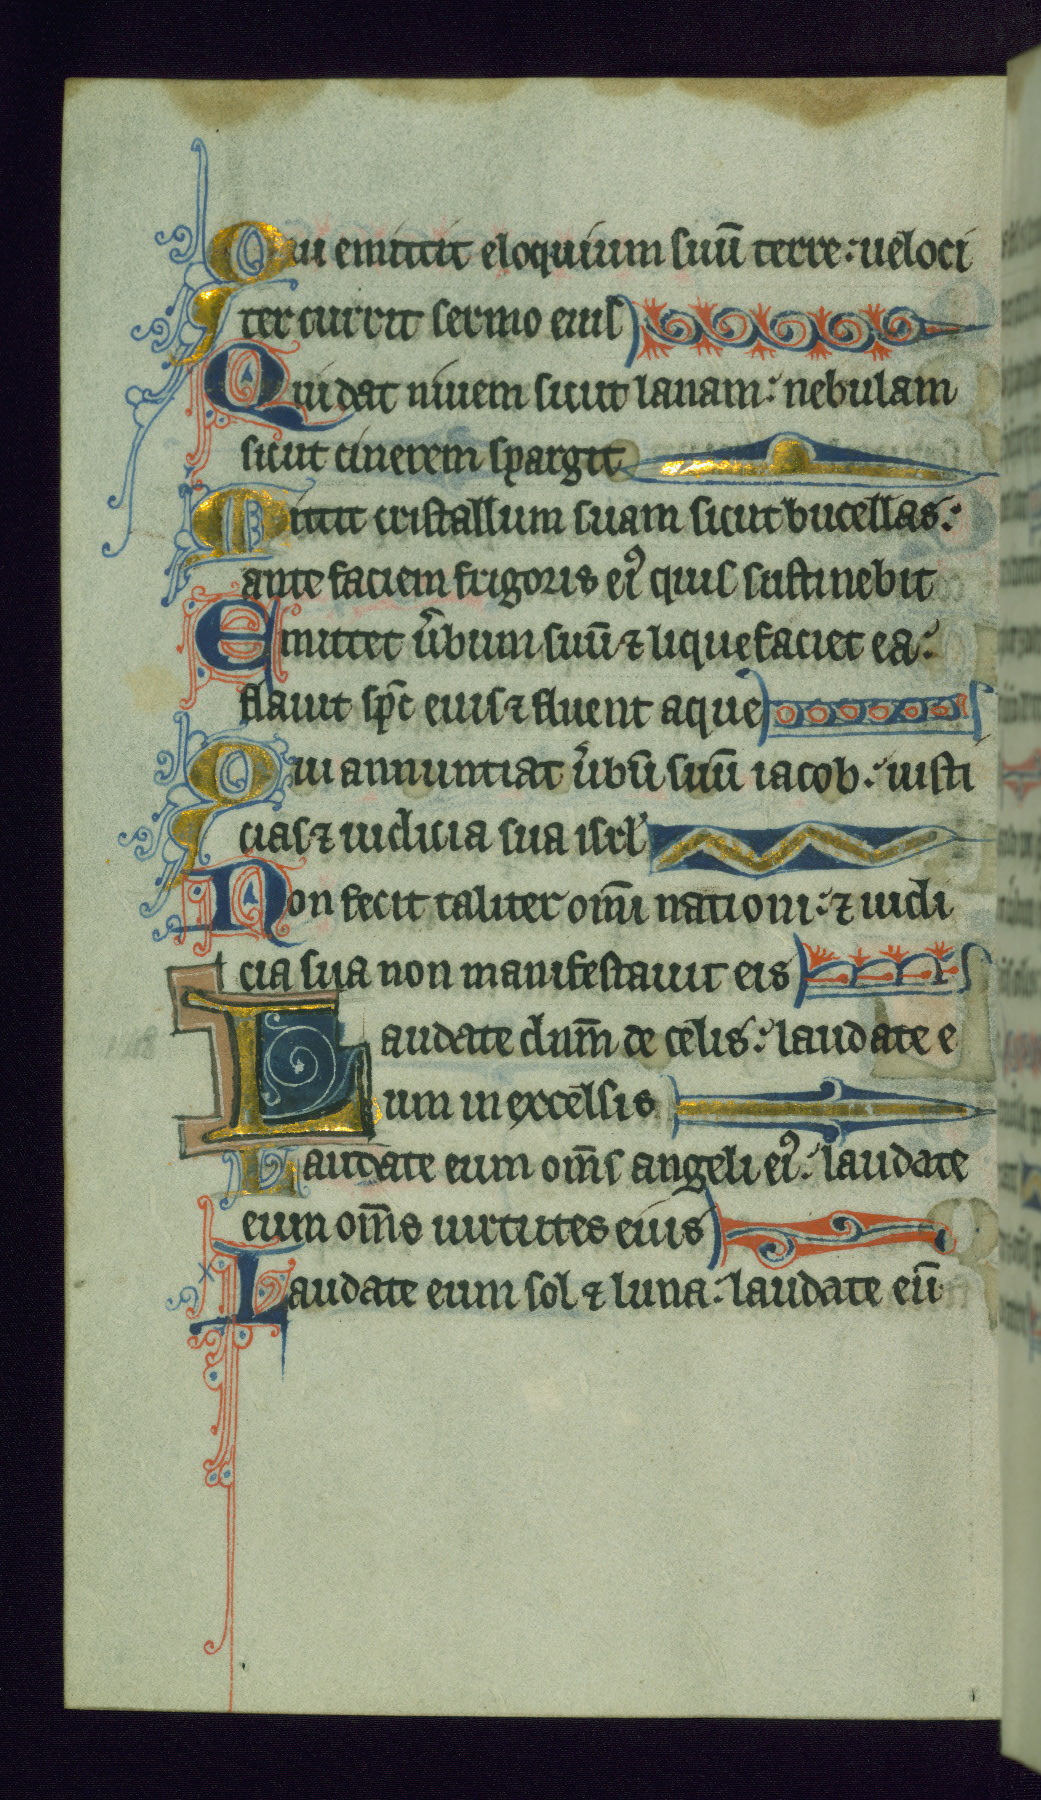 Qui emittit eloquium suū terre: ueloci
ter currit sermo eius
Qui dat niuem sicut lanam: nebulam
sicut cinerem spargit
Mittit cristallum suam sicut bucellas:
ante faciem frigoris ei᷒ quis sustinebit
Emittet ūbum suū ⁊ liquefaciet ea:
flauit sp̄c eius ⁊ fluent aque
Qui annuntiat ūbū suū iacob: iusti
cias ⁊ iudicia sua isrl̓
Non fecit taliter om̄i nationi: ⁊ iudi
cia sua non manifestauit eis
Laudate dum̄ de celis: laudate e
um in excelsis
Laudate eum om̄s angeli ei᷒: laudate
eum om̄s uirtutes eius
Laudate eum sol ⁊ luna: laudate eū